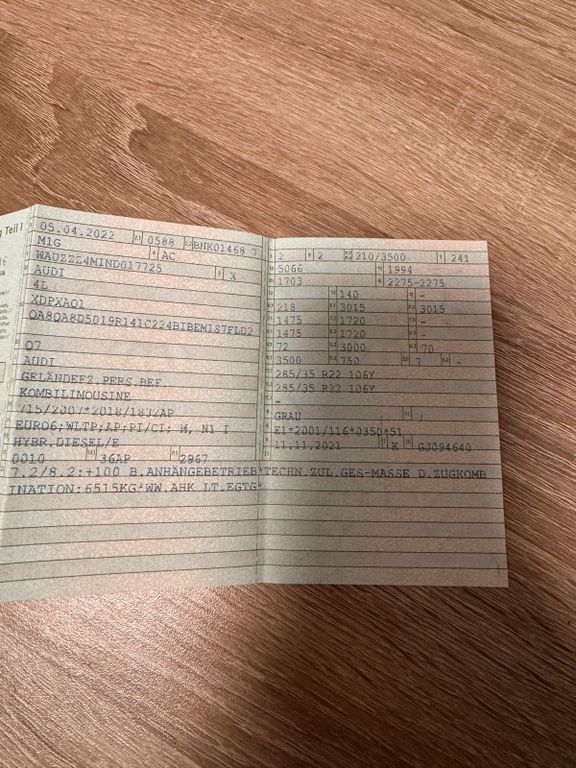 g Teil I
05.04.2022 2.1 0588 2.2 BNK01468 7
M1G 4 AC
WAUZZZ4MIND017725 3 X
AUDI
4L
XDPXAQ1
QA8QA8D5019R141C224BIBEM1S7FLD2
Q7
AUDI
GELÄNDEFZ.PERS.BEF.
KOMBILIMOUSINE
715/2007*2018/1832AP
EURO6;WLTP;AP;PI/CI; M, N1 I
HYBR.DIESEL/E
0010 14.1 36AP 2967
2 9 2 210/3500 T 241
5066 1994
1703 2275-2275
- 140 -
218 3015 3015
1475 1720 -
1475 1720 -
72 3000 70
3500 750 7 -
285/35 R22 106Y
285/35 R22 106Y
-
GRAU 11 /
E1*2001/116*0350*51
11.11.2021 17 K 16 GJ094640
7.2/8.2:+100 B.ANHÄNGEBETRIEB*TECHN.ZUL.GES-MASSE D.ZUGKOMB
INATION:6515KG*WW.AHK LT.EGTG*